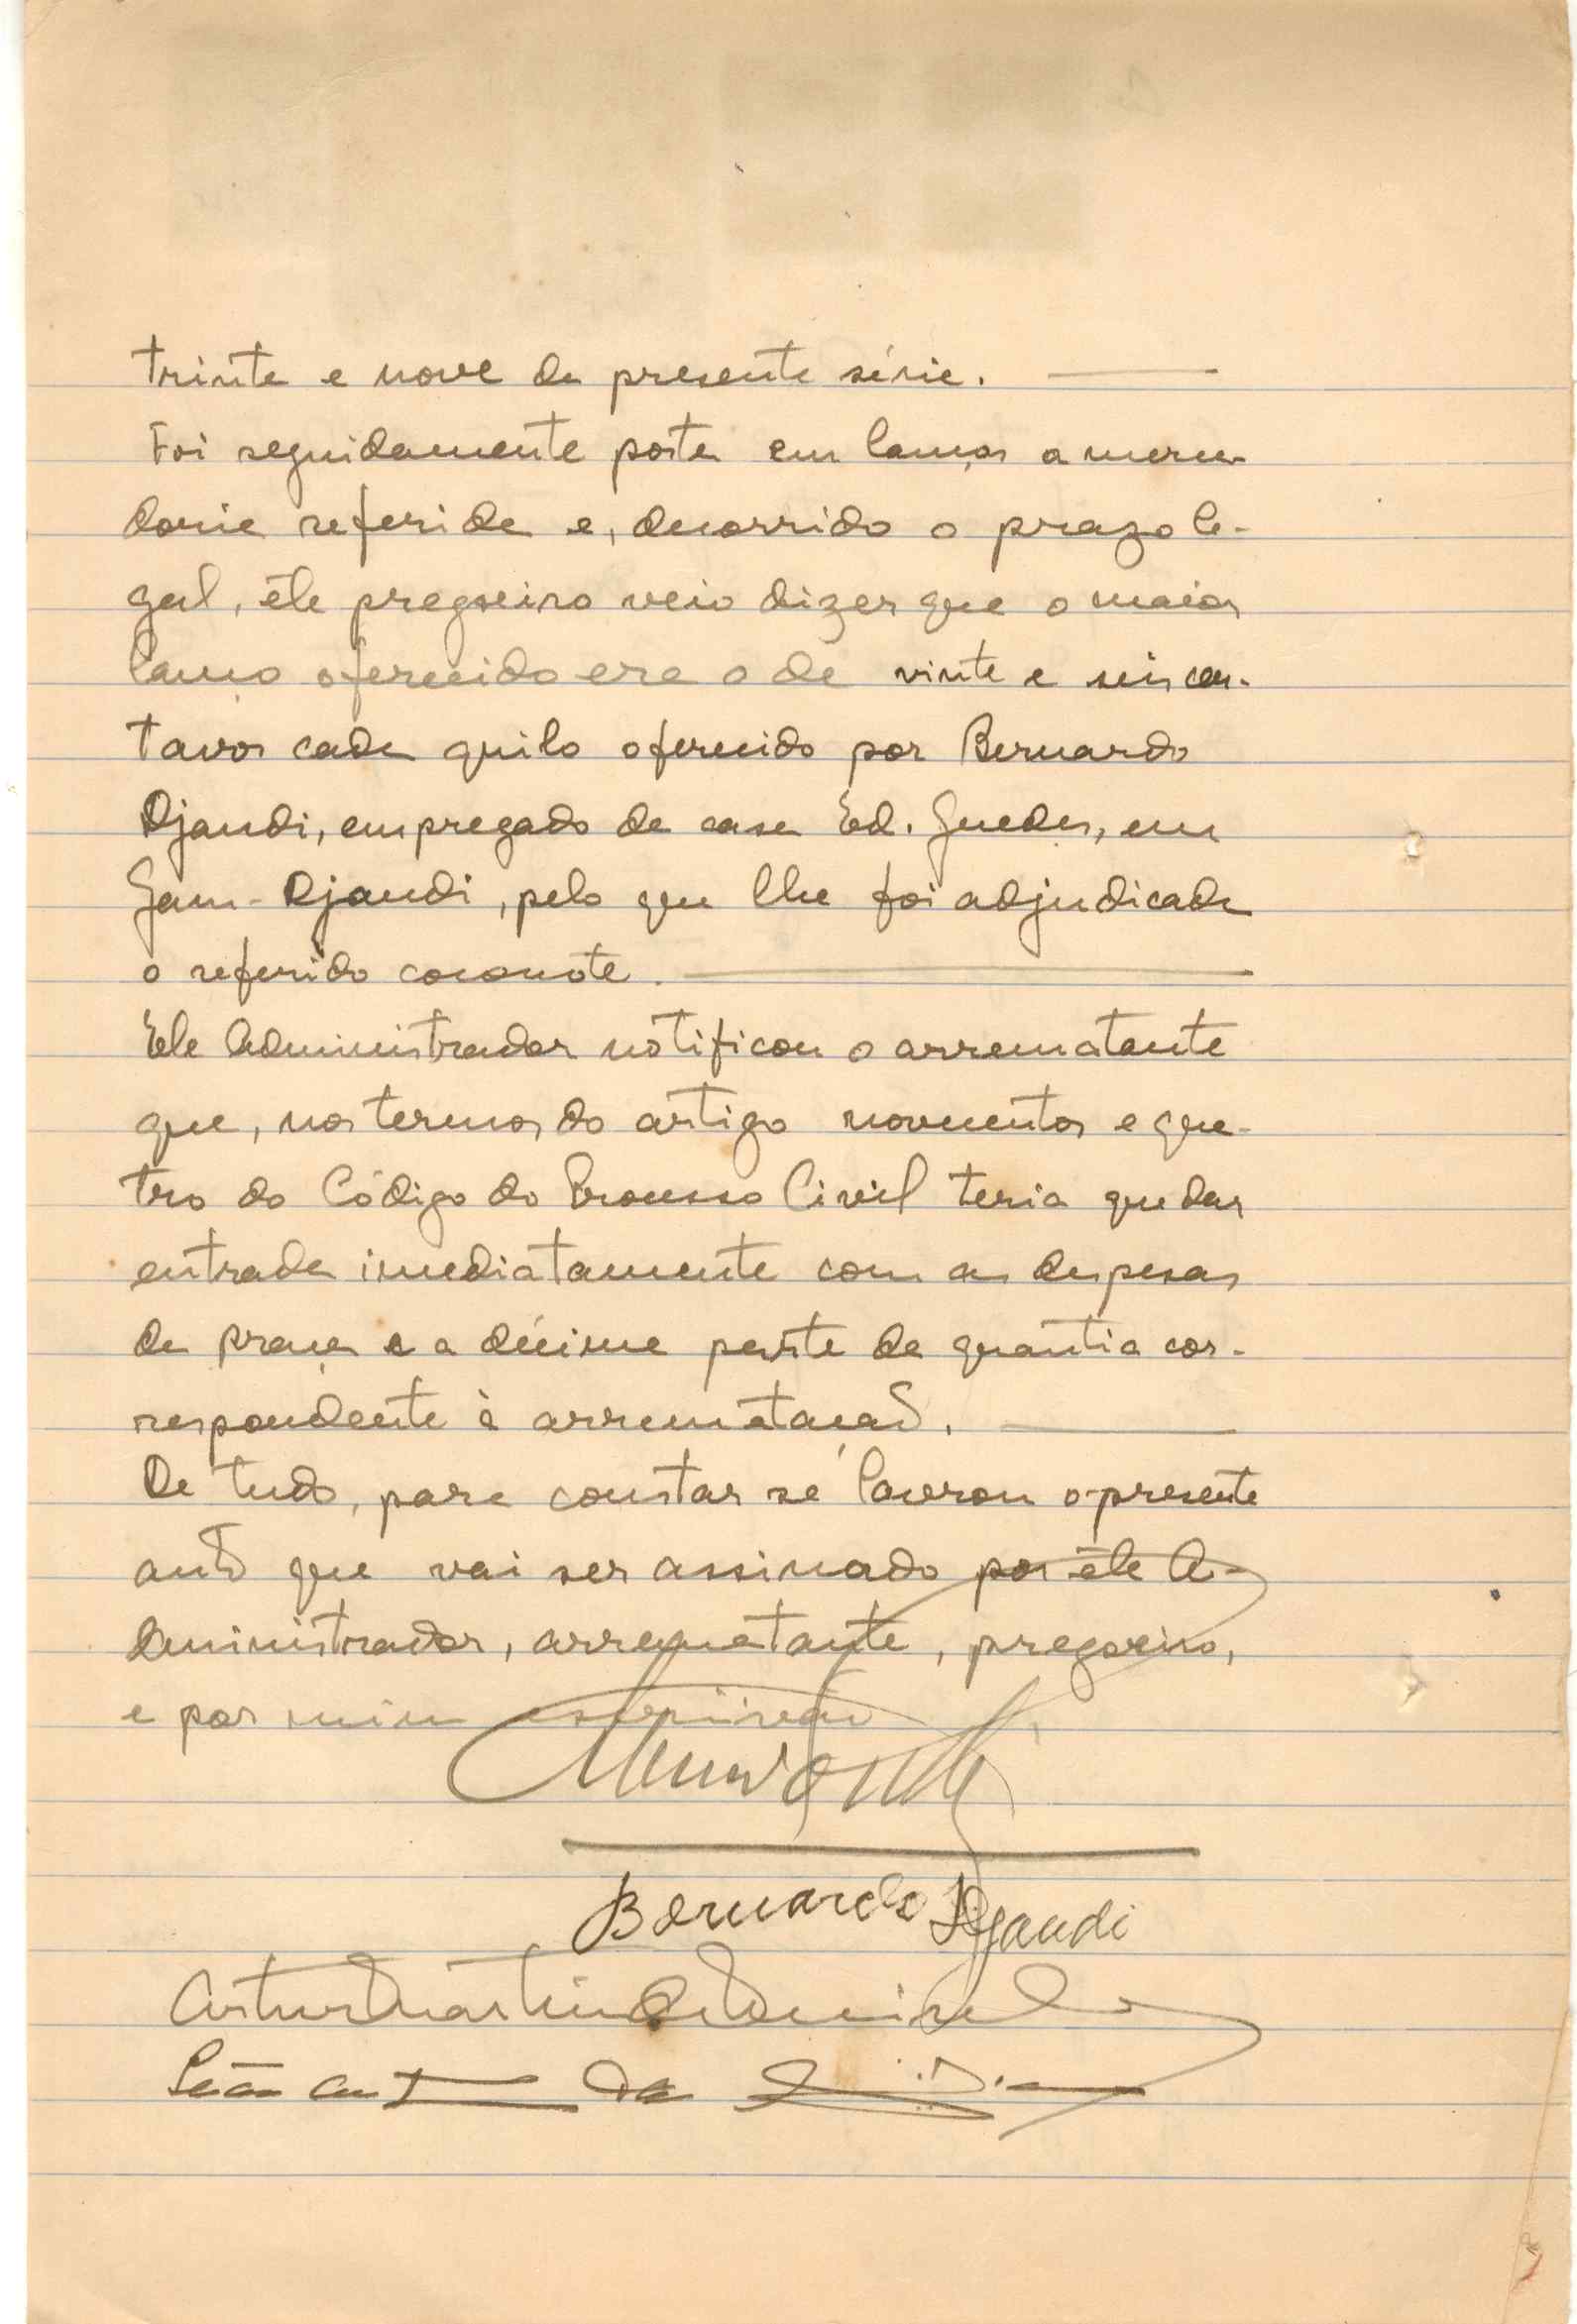 trinta e nove da presente série.
Foi seguidamente posta em lanços a merca-
doria referida e, decorrido o prazo le-
gal, êle pregoeiro veio dizer que o maior
lanço oferecido era o de vinte e seis cen-
tavos cada quilo oferecido por Bernardo
Djandi, empregado da casa Ed. Guedes, em
Gam-Djandi, pelo que lhe foi adjudicada
o referido coconote.
Êle Administrador notificou o arrematante
que, nos termos do artigo novecentos e qua-
tro do Código do Processo Civil teria que dar
entrada imediatamente com as despesas
da praça e a décima parte da quantia cor-
respondente à arrematação.
De tudo, para constar se lavrou o presente
auto que vai ser assinado por êle A-
dministrador, arrematante, pregoeiro,
e por mim escrivão
Bernardo Djandi
Artur Martins de